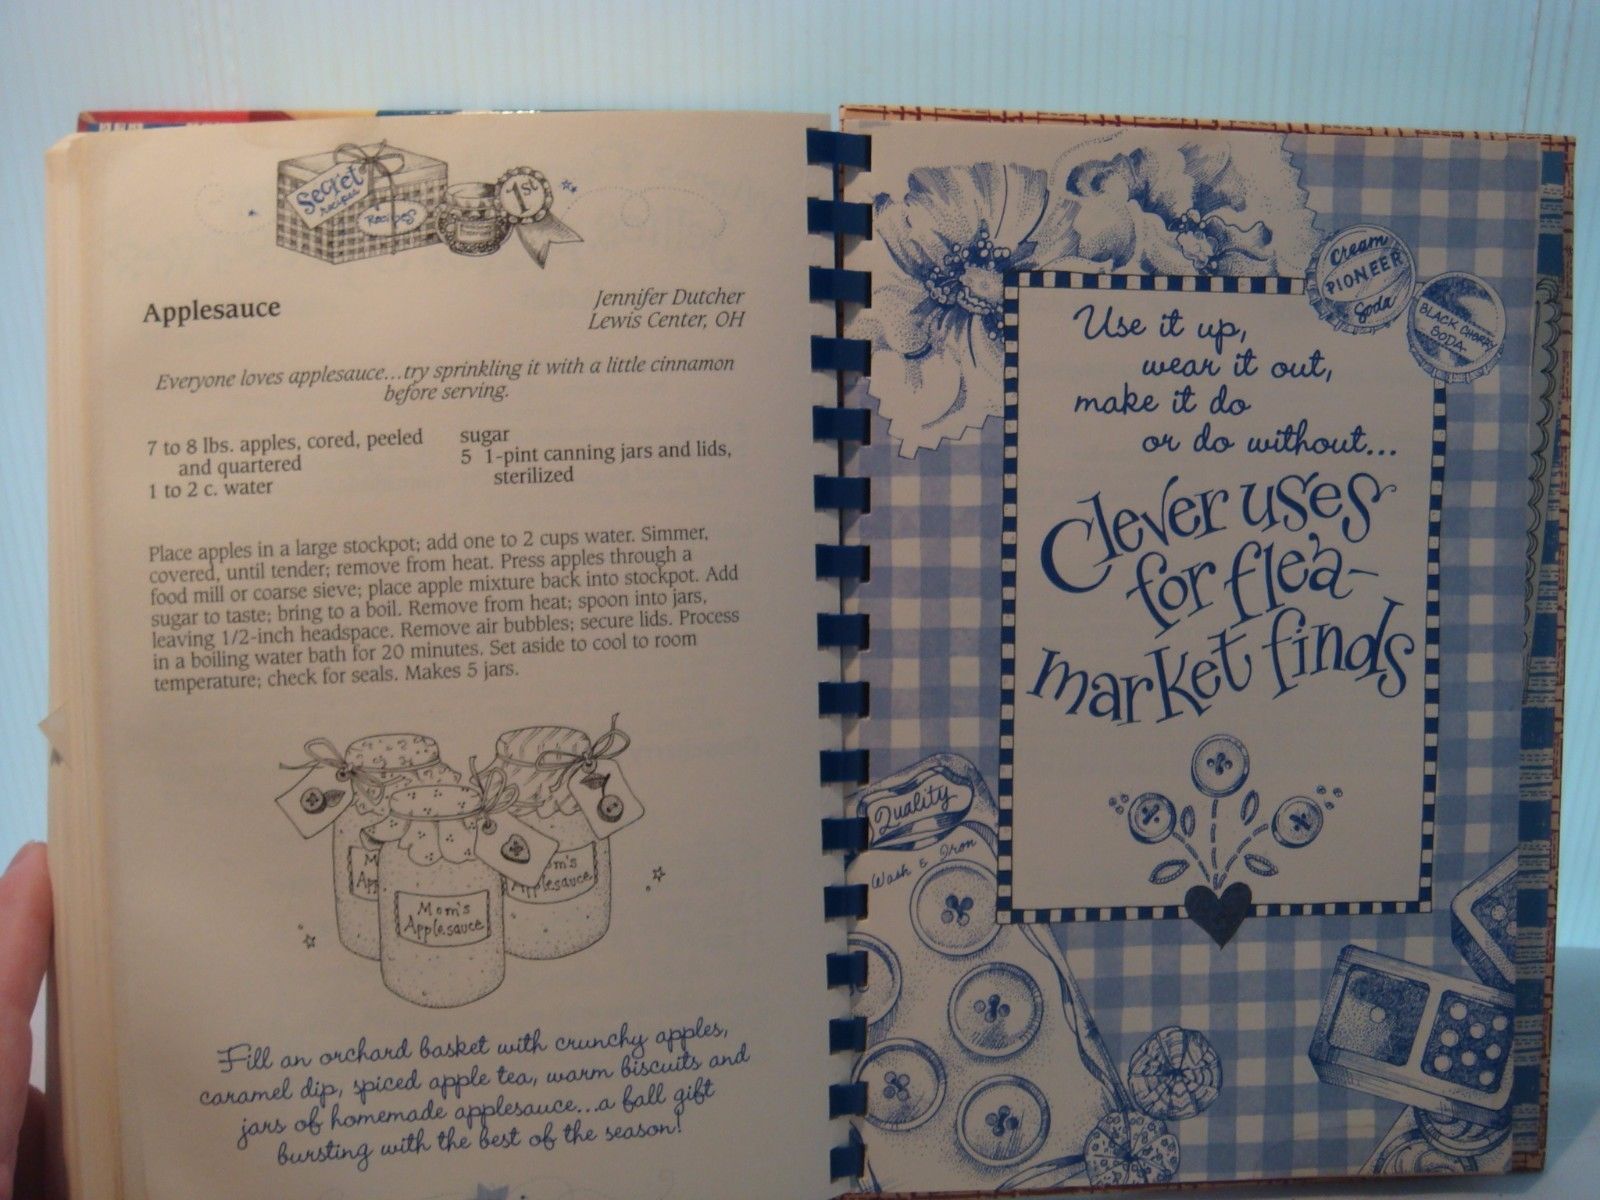 Secret
recipes
Recipes
1st
Applesauce
Jennifer Dutcher
Lewis Center, OH
Everyone loves applesauce...try sprinkling it with a little cinnamon
before serving.
7 to 8 lbs. apples, cored, peeled
and quartered
1 to 2 c. water
sugar
5 1-pint canning jars and lids,
sterilized
Place apples in a large stockpot; add one to 2 cups water. Simmer,
covered, until tender; remove from heat. Press apples through a
food mill or coarse sieve; place apple mixture back into stockpot. Add
sugar to taste; bring to a boil. Remove from heat; spoon into jars,
leaving 1/2-inch headspace. Remove air bubbles; secure lids. Process
in a boiling water bath for 20 minutes. Set aside to cool to room
temperature; check for seals. Makes 5 jars.
M
Ap
om's
Applesauce
Mom's
Applesauce
Fill an orchard basket with crunchy apples,
caramel dip, spiced apple tea, warm biscuits and
jars of homemade applesauce...a fall gift
bursting with the best of the season!
Cream
PIONEER
Soda
BLACK CHERRY
SODA
Use it up,
wear it out,
make it do
or do without...
Clever uses
for flea-
market finds
Quality
Wash & Iron